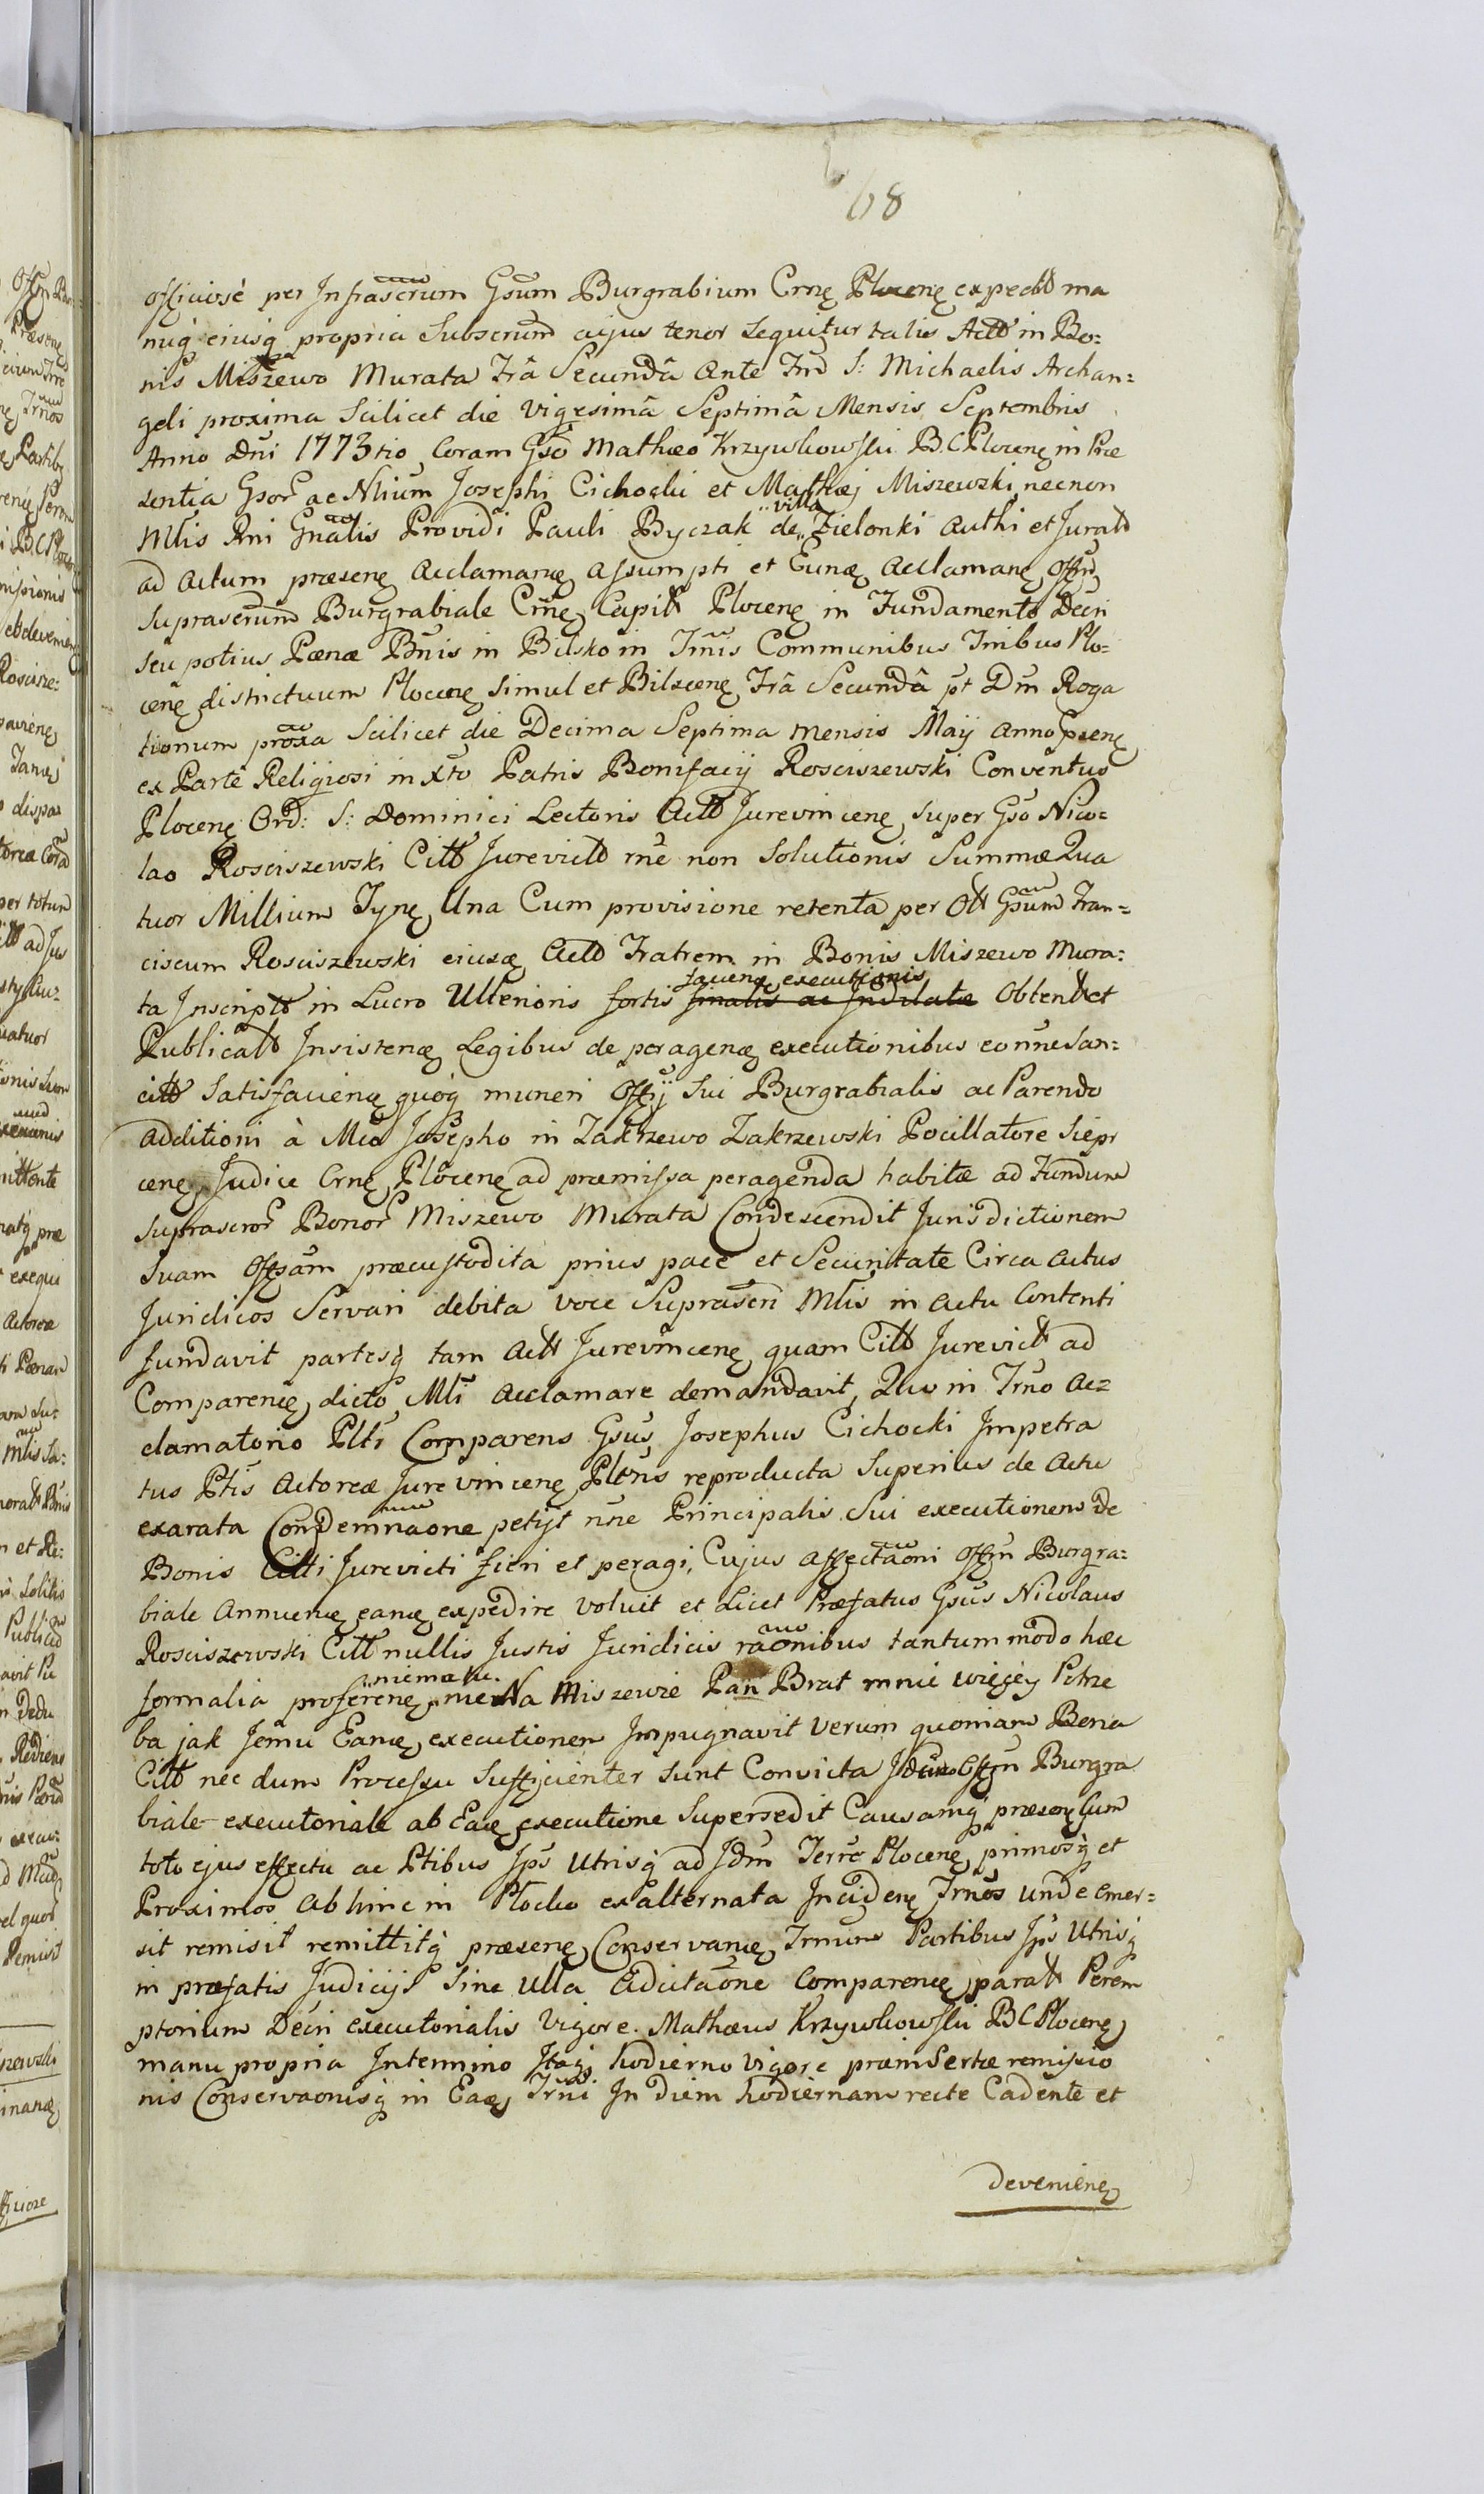 68
officiose per Infrascrum Gsum Burgrabium Crnę Plocenę expedtt ma
nuq́ eiusq́ propria Subscrum cujus tenor sequitur talis Actt in Bo:
nis Miszewo Murata Frâ Secundâ Ante Fm S: Michaelis Archan=
geli proxima Scilicet die Vigesimâ Septimâ Mensis Septembris
Anno Dni 1773tio Coram Gso Mathæo Krzywkowski B.C.Plocenę in Præ
sentia Gsor ac Nlium Josephi Cichocki et Mathæj Miszewski necnon
Mlis Rni Gnalis Providi Pauli Byczak de villa Zielonki Authi et Juratt
ad Actum præsenę Acclamanę assumpti et Eunę Acclamanę Offm
suprascrum Burgrabiale Crnę Capittt Plocenę in Fundamento Decri
seu potius Pœnæ Bnis in Bilsko in Tmis Communibus Tnibus Plo=
cenę districtuum Plocenę simul et Bilscenę Frâ Secundâ pt Dm Roga
tionum proxa Scilicet die Decima Septima mensis Maij Anno præsenę
ex Parte Religiosi in Xto Patris Bonifacij Rosciszewski Conventus
Plocenę Ord: S: Dominici Lectoris Actt Jurevincenę super Gso Nico=
lao Rosciszewski Citt Jurevictt rne non Solutionis Summæ Qua
tuor Millium Tynę Una Cum provisione retenta per Ott Gsum Fran=
ciscum Rosciszewski eiusę Actt Fratrem in Bonis Miszewo Mura:
ta Inscriptt in Lucro Ulterioris fortis finalis ac Indilatæ faciendę executionis Obtentt et
Publicatt Insistenę Legibus de peragenę executionibus eonne San=
citt Satisfacienę quoq́ muneri Offij Sui Burgrabialis ac Parendo
additioni à Mco Josepho in Zakrzewo Zakrzewski Pocillatore Siepr
cenę Judice Crnę Plocenę ad præmissa peragenda habitæ ad Fundum
suprascror Bonor Miszewo Murata Condescendit Jurisdictionem
suam Offsam præcustodita prius pace et Securitate Circa Actus
Juridicos Servari debita voce Suprascri Mlis in Actu Contenti
fundavit partesq́ tam Actt Jurevincenę quam Citt Jurevictt ad
Comparenę dicto Mli Acclamare demandavit, Quo in Trno Ac=
clamatorio Plti Comparens Gsus Josephus Cichocki Impetra
tus Ptis Actoreæ Jurevincenę Pltris reproducta Superius de Actu
exarata Condemnaone petijt nne Principalis Sui executionem de
Bonis Citti Jurevicti fieri et peragi, Cujus Affectaoni Offm Burgra:
biale Annuenę eanę expedire voluit et Licet Præfatus Gsus Nicolaus
Rosciszewski Citt nullis Justis Juridicis raonibus tantummodo hæc
formalia proferenę niemasz Na Miszewie Pan Brat mnie więcey Potrze
ba jak Jemu Eanę executionem Impugnavit Verum quoniam Bona
Citt nec dum Processu Sufficienter Sunt Convicta Offm Burgra
biale executoriale ab Eaę executione Supersedit Causamq́ præsenę Cum
toto ejus effectu ac Ptibus Jps Utrisq́ ad Jdm Terre Plocenę primosq́ et
Proximos Abhinc in Plocko ex alternata Incidenę Trnos unde emer=
sit remisit remittitq́ præsenę Conservanę Trnum Partibus Jps Utrisq́
in præfatis Judicijs Sine Ulla Adcitaone Comparenę paratt Perem
ptorium Decri executorialis Vigore. Mathæus Krzywkowski BCPlocenę
manu propria Intermino Itaq́ hodierno vigore præinsertæ remissio
nis Conservaonisq́ in Eaę Trni In diem hodiernam recte Cadente et
devenienę